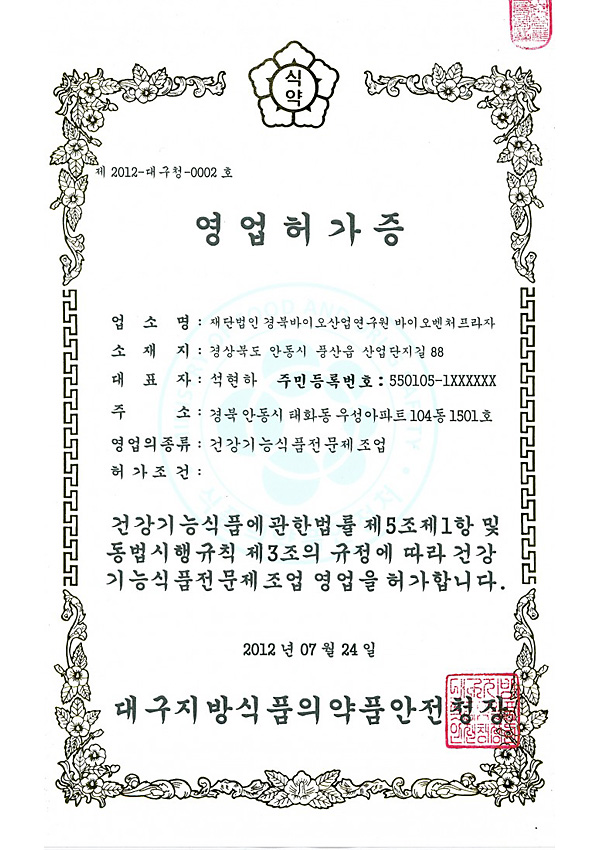 식약
제 2012-대구청-0002 호
영업허가증
업 소 명 : 재단법인 경북바이오산업연구원 바이오벤처프라자
소 재 지 : 경상북도 안동시 풍산읍 산업단지길 88
대 표 자 : 석현하 주민등록번호 : 550105-1XXXXXX
주 소 : 경북 안동시 태화동 우성아파트 104동 1501호
영업의종류 : 건강기능식품전문제조업
허가조건 :
건강기능식품에관한법률 제5조제1항 및
동법시행규칙 제3조의 규정에 따라 건강
기능식품전문제조업 영업을 허가합니다.
2012 년 07 월 24 일
대구지방식품의약품안전청장